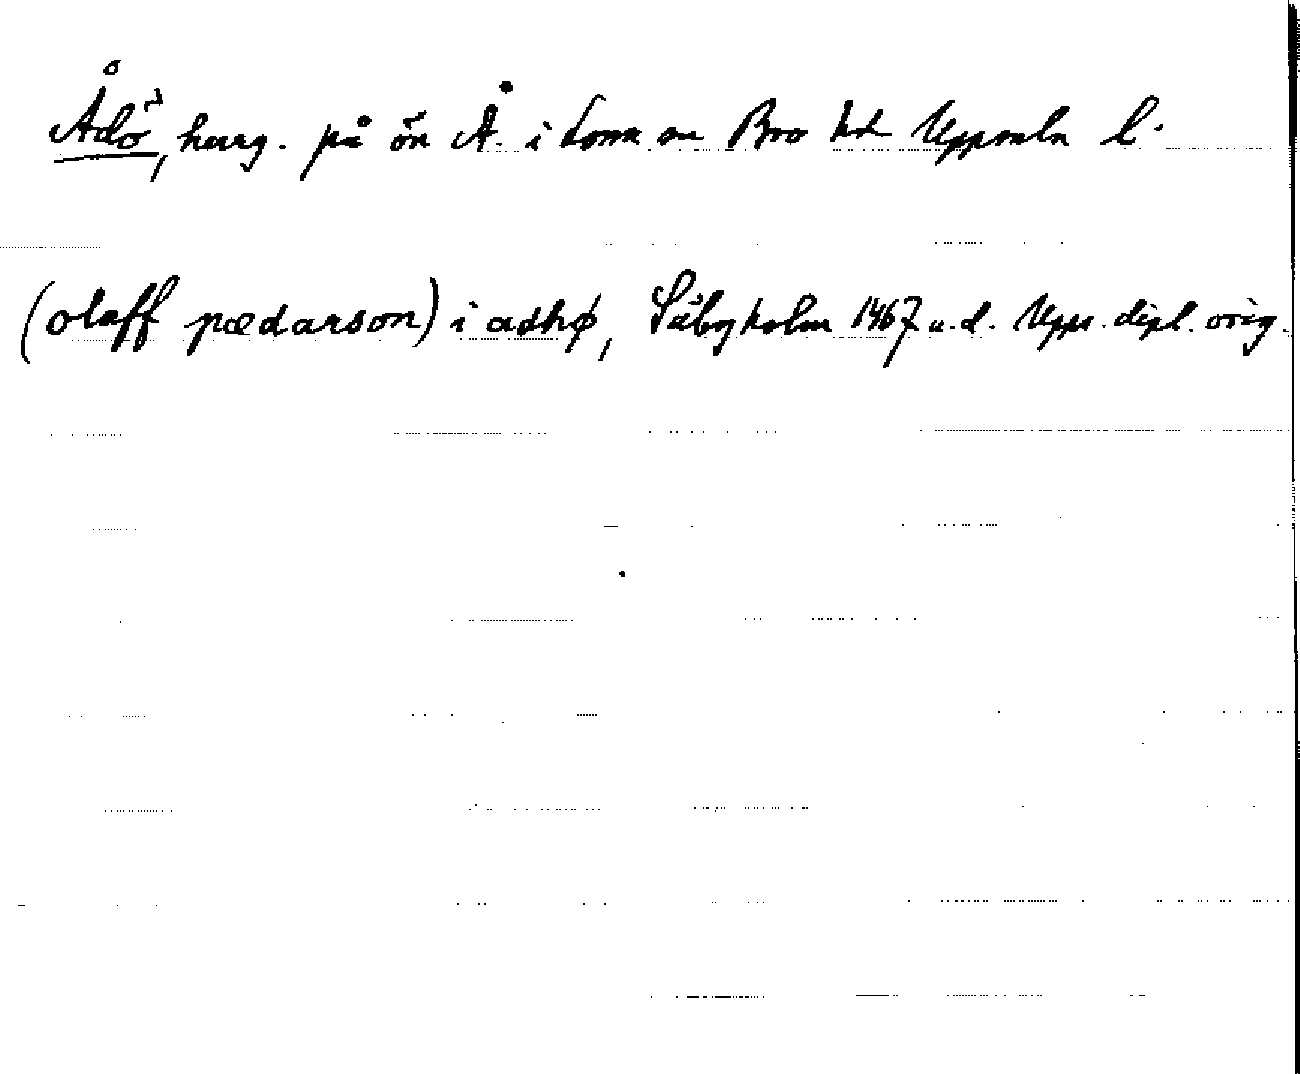 Ådö, herrg. på ön Å. i Låssa sn Bro hd Uppsala l.
(olaff pædarson) i adhø, Säbyholm 1467 u.d. Upps. dipl. orig.